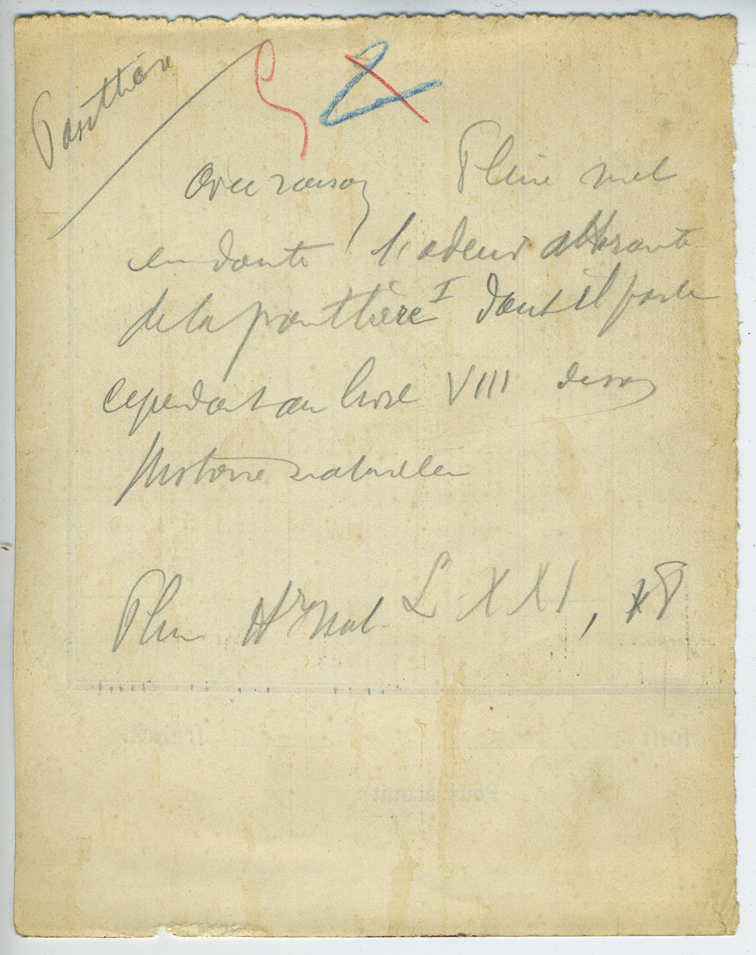 Panthère
Avec raison Pline met
en doute l'odeur attirante
de la panthère I dont il parle
cependant au livre VIII de son
Histoire naturelle
Plin Hr Nat. L XXI, 18
Pour acquit